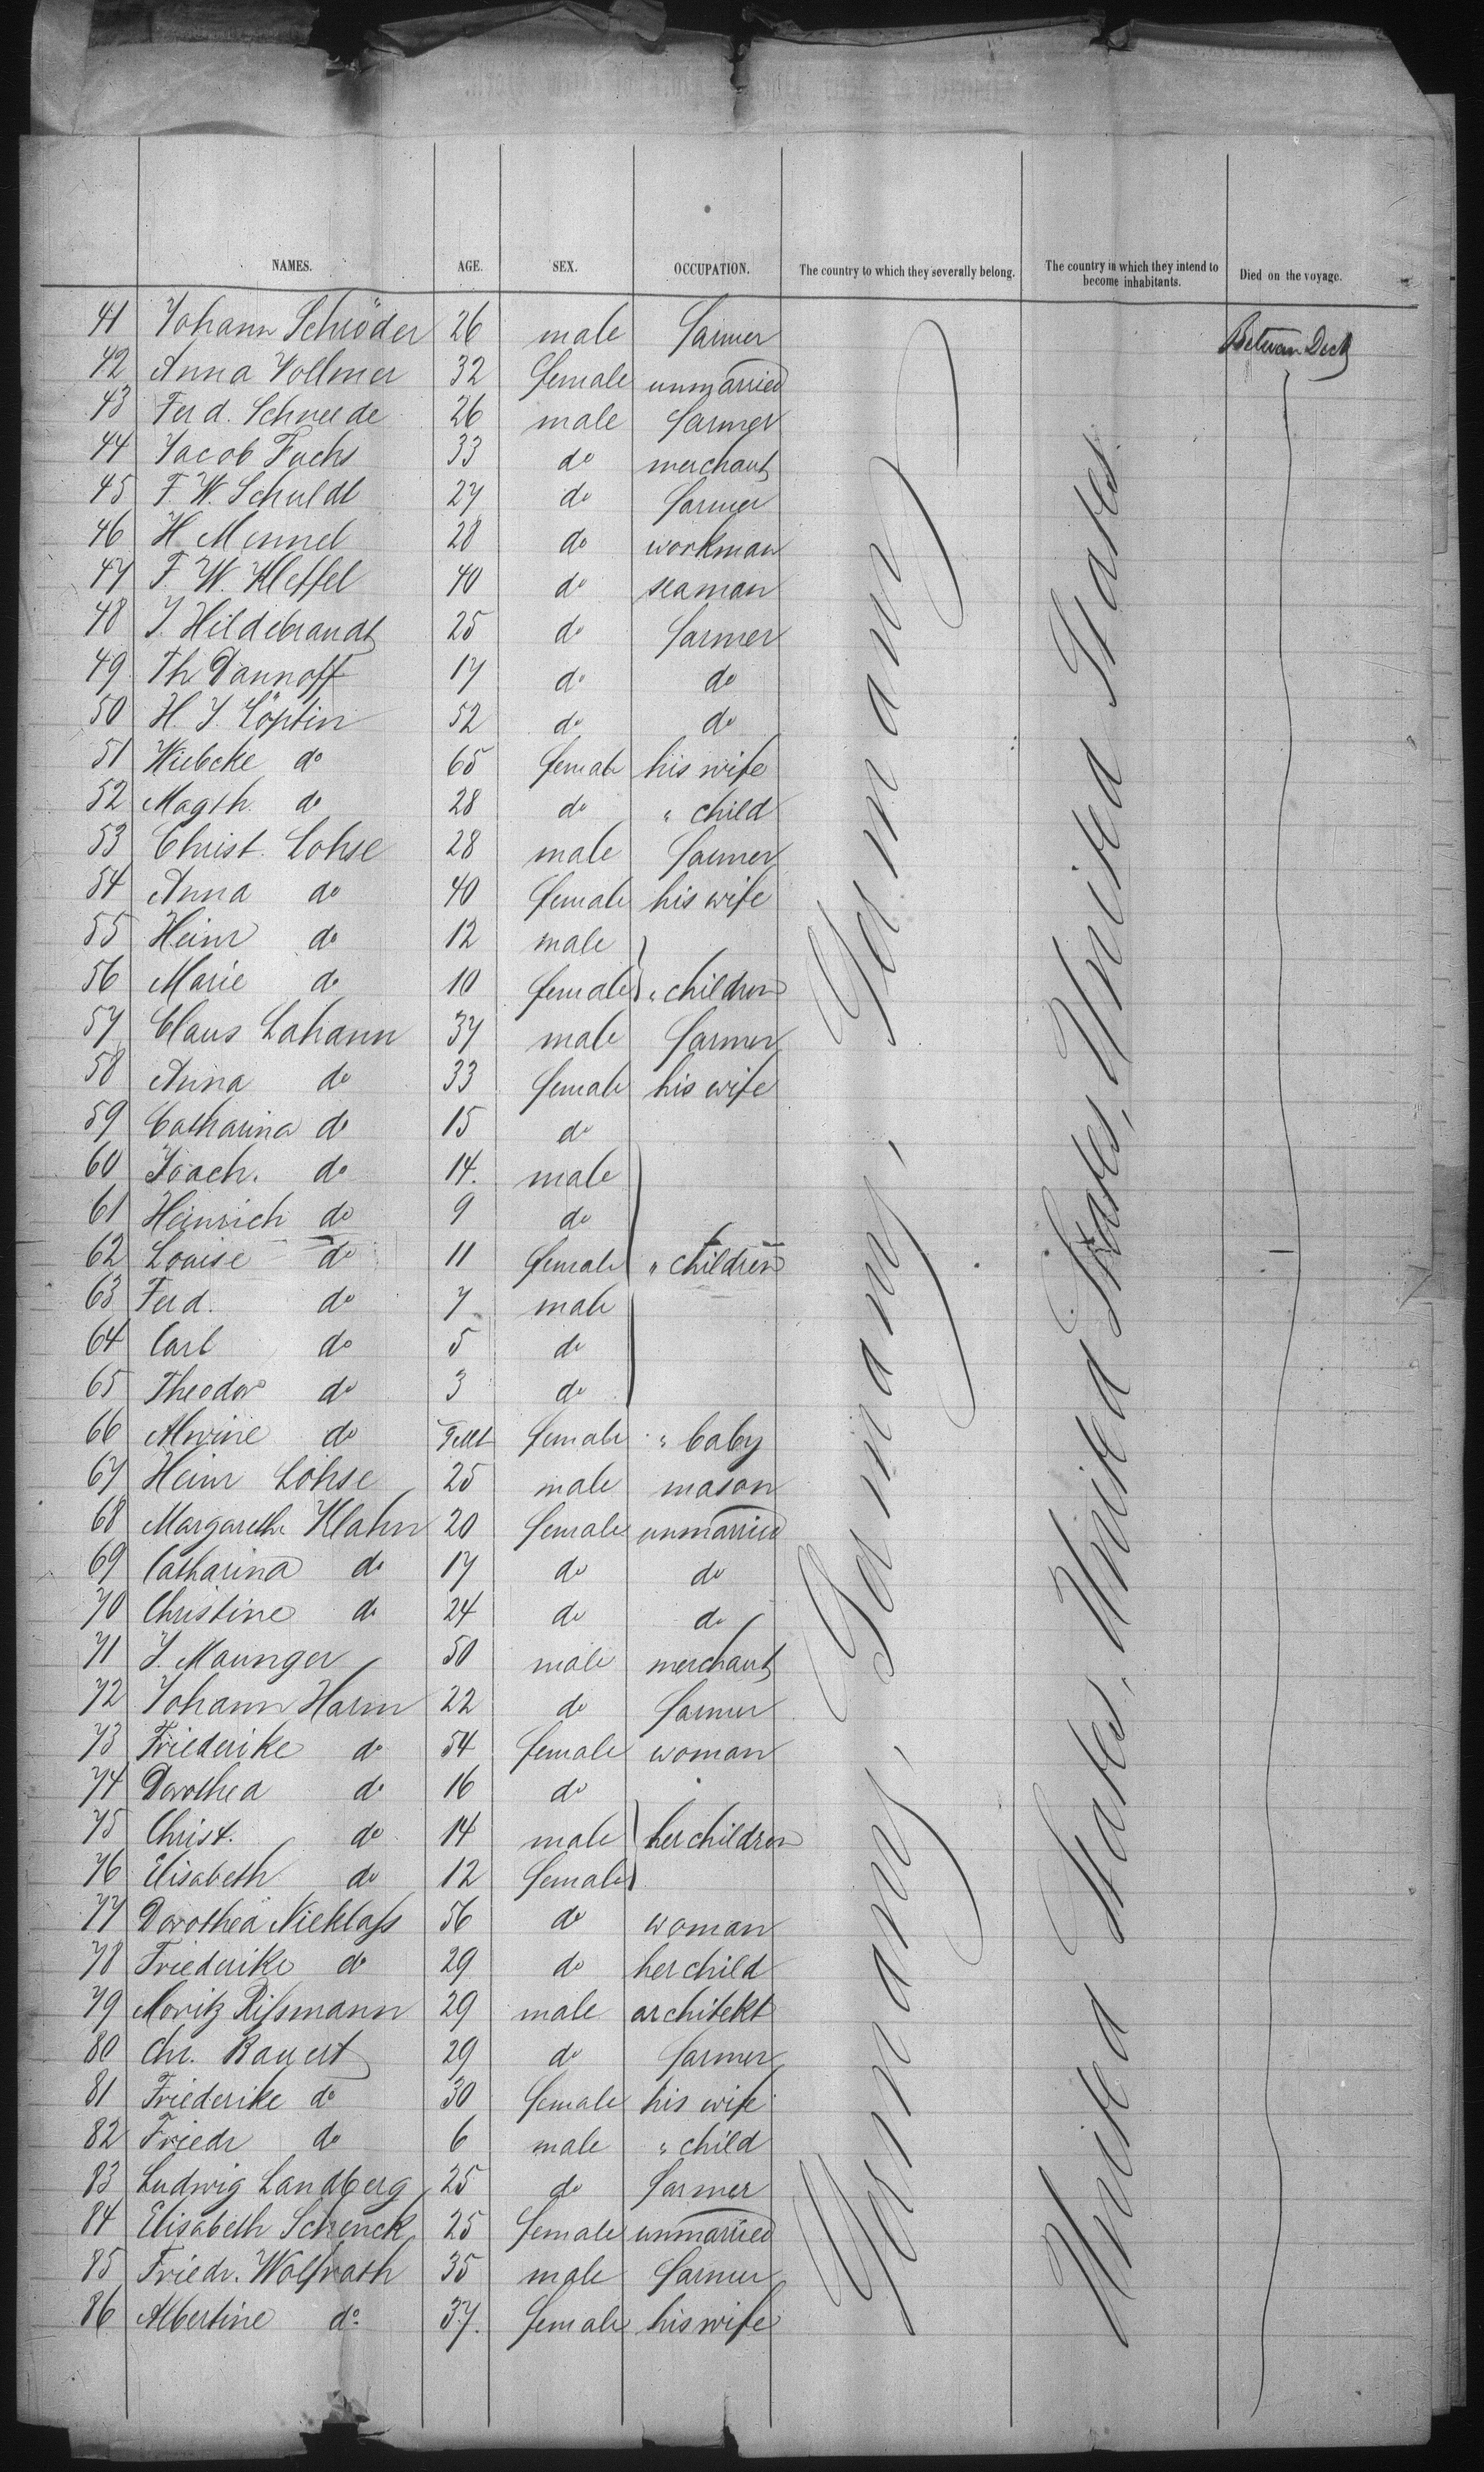 NAMES. AGE. SEX. OCCUPATION. The country to which they severally belong. The country in which they intend to become inhabitants. Died on the voyage.
41 Johann Schröder 26 male farmer
42 Anna Vollmer 32 female unmarried
43 Ferd. Schneede 26 male farmer
44 Jacob Fuchs 33 do merchant
45 F. W. Schuldt 27 do farmer
46 H. Mennel 28 do workman
47 F. W. Kleffel 40 do seaman
48 J. Hildebrandt 25 do farmer
49 Th Dannoff 17 do do
50 H. J. Löptin 52 do do
51 Wiebcke do 65 female his wife
52 Magth. do 28 do " child
53 Christ. Lohse 28 male farmer
54 Anna do 40 female his wife
55 Heinr do 12 male
56 Marie do 10 female " children
57 Claus Lahann 37 male farmer
58 Anna do 33 female his wife
59 Catharina do 15 do
60 Joach. do 14. male
61 Heinrich do 9 do
62 Louise do 11 female " children
63 Ferd. do 7 male
64 Carl do 5 do
65 Theodor do 3 do
66 Alwine do female " baby
67 Heinr Lohse 25 male mason
68 Margarethe Klahn 20 female unmarried
69 Catharina do 17 do do
70 Christine do 24 do do
71 J. Maunger 50 male merchant
72 Johann Harm 22 do farmer
73 Friederike do 54 female woman
74 Dorothea do 16 do
75 Christ. do 14 male her children
76 Elisabeth do 12 female
77 Dorothea Nicklaſs 56 do woman
78 Friederike do 29 do her child
79 Moritz Riſsmann 29 male architekt
80 Chr. Bauert 29 do farmer
81 Friederike do 30 female his wife
82 Friedr do 6 male " child
83 Ludwig Landberg 25 do farmer
84 Elisabeth Schenck 25 female unmarried
85 Friedr. Wolfrath 35 male farmer
86 Albertine do 37. female his wife
Germany, Germany, Germany
United States, United States, United States
Deck